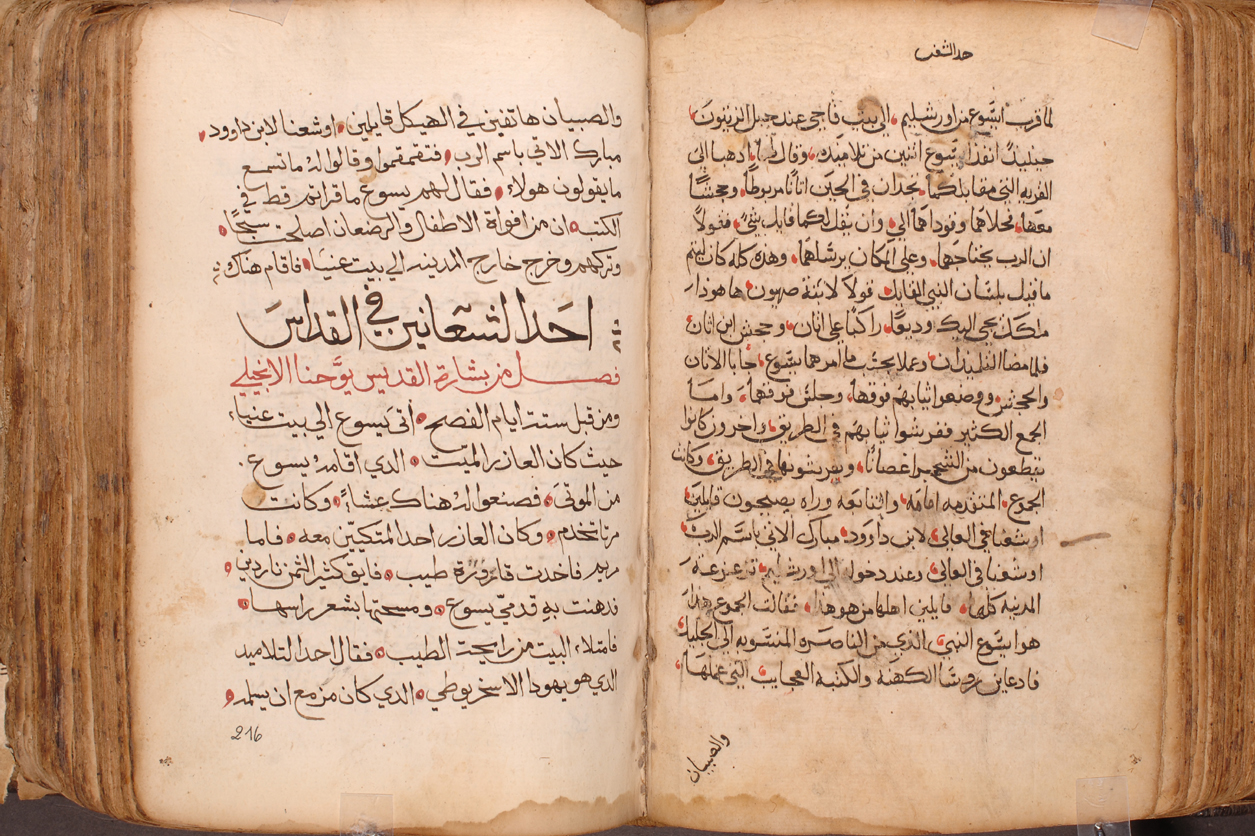 لما قرب ايسوع من اورشليم الي بيت فاجي عند جبل الزيتون
حينيذ انفذ ايسوع اثنين من تلاميذه وقال لهما اذهبا الي
القريه التي مقابلكما تجدان في الحين اتانا مربوطا وجحشا
معها فحلاهما وقوداهما الي وان يقل لكما قايل شي فقولا
ان الرب يحتاجهما وعلي المكان يرسلهما وهذه كله كان ليتم
ما قيل بلسان النبي القايل قولا لابنة صهيون ها هوذا
ملكك يجي اليك وديعا راكبا علي اتان وجحش ابن اتان
فلما مضا التلميذان وعملا بحسب ما امرهما يسوع جابا الاتان
والجحش ووضعوا ثيابهم فوقها وجلس فوقهما واما
الجمع الكثير ففرشوا ثيابهم في الطريق واخرون كانوا
يقطعون من الشجر اغصانا ويفرشونها في الطريق وكانت
الجموع المتقدمه امامه والتابعه وراه يصيحون قايلين
اوشعنا في العالي لابن داوود مبارك الاتي باسم الرب
اوشعنا في العالي وعند دخوله الي اورشليم تزعزعة
المدينه كلها قايلين اهلها من هو هذا فقالت الجموع هذا
هو ايسوع النبي الذي من الناصره المنسوبه الي الجليل
فاذ عاين روسا الكهنه والكتبه العجايب التي عملها
والصبيان
والصبيان هاتفين في الهيكل قايلين اوشعنا لابن داوود
مبارك الاتي باسم الرب فتقمقموا وقالوا له ما تسمع
ما يقولون هولاء فقال لهم يسوع ما قراتم قط في
الكتبه ان من افواة الاطفال والرضعان اصلحت سبحًا
وتركهم وخرج خارج المدينه الي بيت عنيا فاقام هناك
احد الشعانين في القداس
فصل من بشارة القديس يوحنا الانجيلي
ومن قبل ستت ايام الفصح اتى يسوع الي بيت عنيا
حيث كان العازر الميت الدي اقامه يسوع
من الموتى فصنعوا له هناك عشاء وكانت
مرتا تخدم وكان العازر احد المتكيين معه فاما
مريم فاخدت قارورة طيب فايق كثير الثمن ناردين
فدهنت به قدمي يسوع ومسحتها بشعر راسها
فامتلاء البيت من رايحة الطيب فقال احد التلاميد
الدي هو يهودا الاسخريوطي الدي كان مزمع ان يسلمه
216